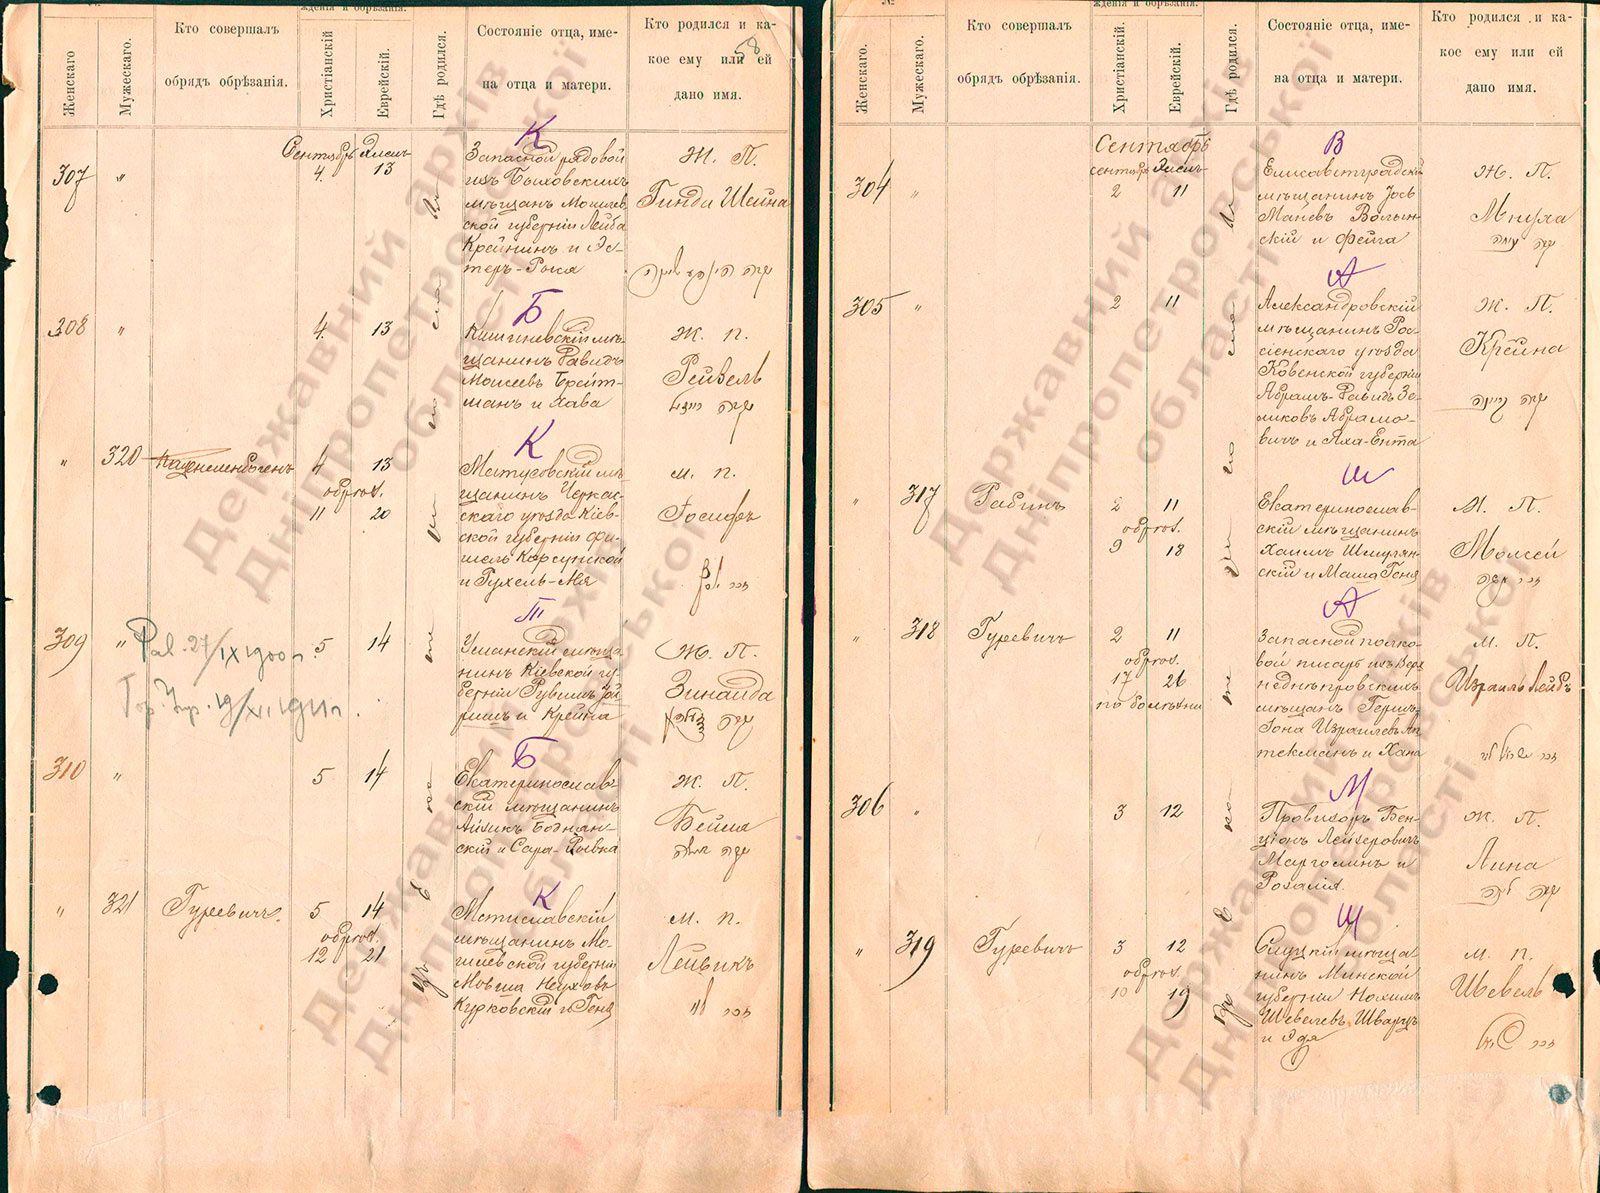 ждения и обрѣзанія.
Женскаго
Мужескаго.
Кто совершалъ
обрядъ обрѣзанія.
Христіанскій
Еврейскій.
Гдѣ родился.
Состояніе отца, име-
на отца и матери.
Кто родился и ка-
кое ему или ей
дано имя.
58
К
Сентябрь Элисъ
307 " 4. 13
Запасной рядовой
изъ Быховскихъ
мѣщанъ Могилев
ской губерніи Лейба
Крейнинъ и Эс-
теръ-Рося
Ж. П.
Гинда Шейна
Б
308 " 4. 13
Кишиневскій мѣ-
щанинъ Давидъ
Моисеевъ Брейт-
манъ и Хава
Ж. п.
Рейзель
К
" 320 Каценеленбогенъ 4 13
обрѣз.
11 20
Матусовскій мѣ-
щанинъ Черкас-
скаго уѣзда Кіев-
ской губерніи Фи-
шель Корсунской
и Рухель-Лея
м. п.
Іосифъ
Т
309 " 5 14
Pal. 27/IX 1900 г.
Гор. Упр. 19/XI 1911 г.
Уманскій мѣща-
нинъ Кіевской гу-
берніи Рувимъ
и Крейна
Ж. П.
Зинаида
Б
310 " 5 14
Екатеринослав-
скій мѣщанинъ
Айзикъ Боднян-
скій и Сара-Ривка
Ж. П.
Бейля
К
" 321 Гуревичъ. 5 14
обрѣз.
12 21
Мстиславскій
мѣщанинъ Мо-
гилевской губерніи
Мовша Неуховъ
Курковскій и Геня
м. п.
Лейвикъ
№
ждения и обрѣзанія.
Женскаго
Мужескаго.
Кто совершалъ
обрядъ обрѣзанія.
Христіанскій
Еврейскій.
Гдѣ родился.
Состояніе отца, име-
на отца и матери.
Кто родился и ка-
кое ему или ей
дано имя.
Сентябрь
В
сентября Элисъ
304 " 2 11
Елисаветградскій
мѣщанинъ Іось
Маневъ Волын-
скій и Фейга
Ж. П.
Мнуха
А
305 " 2 11
Александровскій
мѣщанинъ Рос-
сіенскаго уѣзда
Ковенской губерніи
Абрамъ-Давидъ Зе-
ликовъ Абрамо-
вичъ и Яха-Ента
Ж. П.
Крейна
Ш
" 317 Рабинъ 2 11
обрѣз.
9 18
Екатеринослав-
скій мѣщанинъ
Хаимъ Шмулян-
скій и Маша Геня
М. П.
Моисей
А
" 318 Гуревичъ 2 11
обрѣз.
17 26
по болѣзни
Запасной полко-
вой писарь изъ Верх
неднѣпровскихъ
мѣщанъ Гершъ-
Іона Израилевъ Ап
текманъ и Хана
м. П.
Израиль Лейбъ
М
306 " 3 12
Провизоръ Бен-
ціонъ Лейзеровичъ
Марголинъ и
Розалія.
Ж. П.
Лина
Ш
" 319 Гуревичъ 3 12
обрѣз.
10 19
Слуцкій мѣща
нинъ Минской
губерніи Нохимъ
Шевелевъ Шварцъ
и Эдя
м. п.
Шевель
Державний архів
Дніпропетровської
області
Державний архів
Дніпропетровської
області
Державний архів
Дніпропетровської
області
Державний архів
Дніпропетровської
області